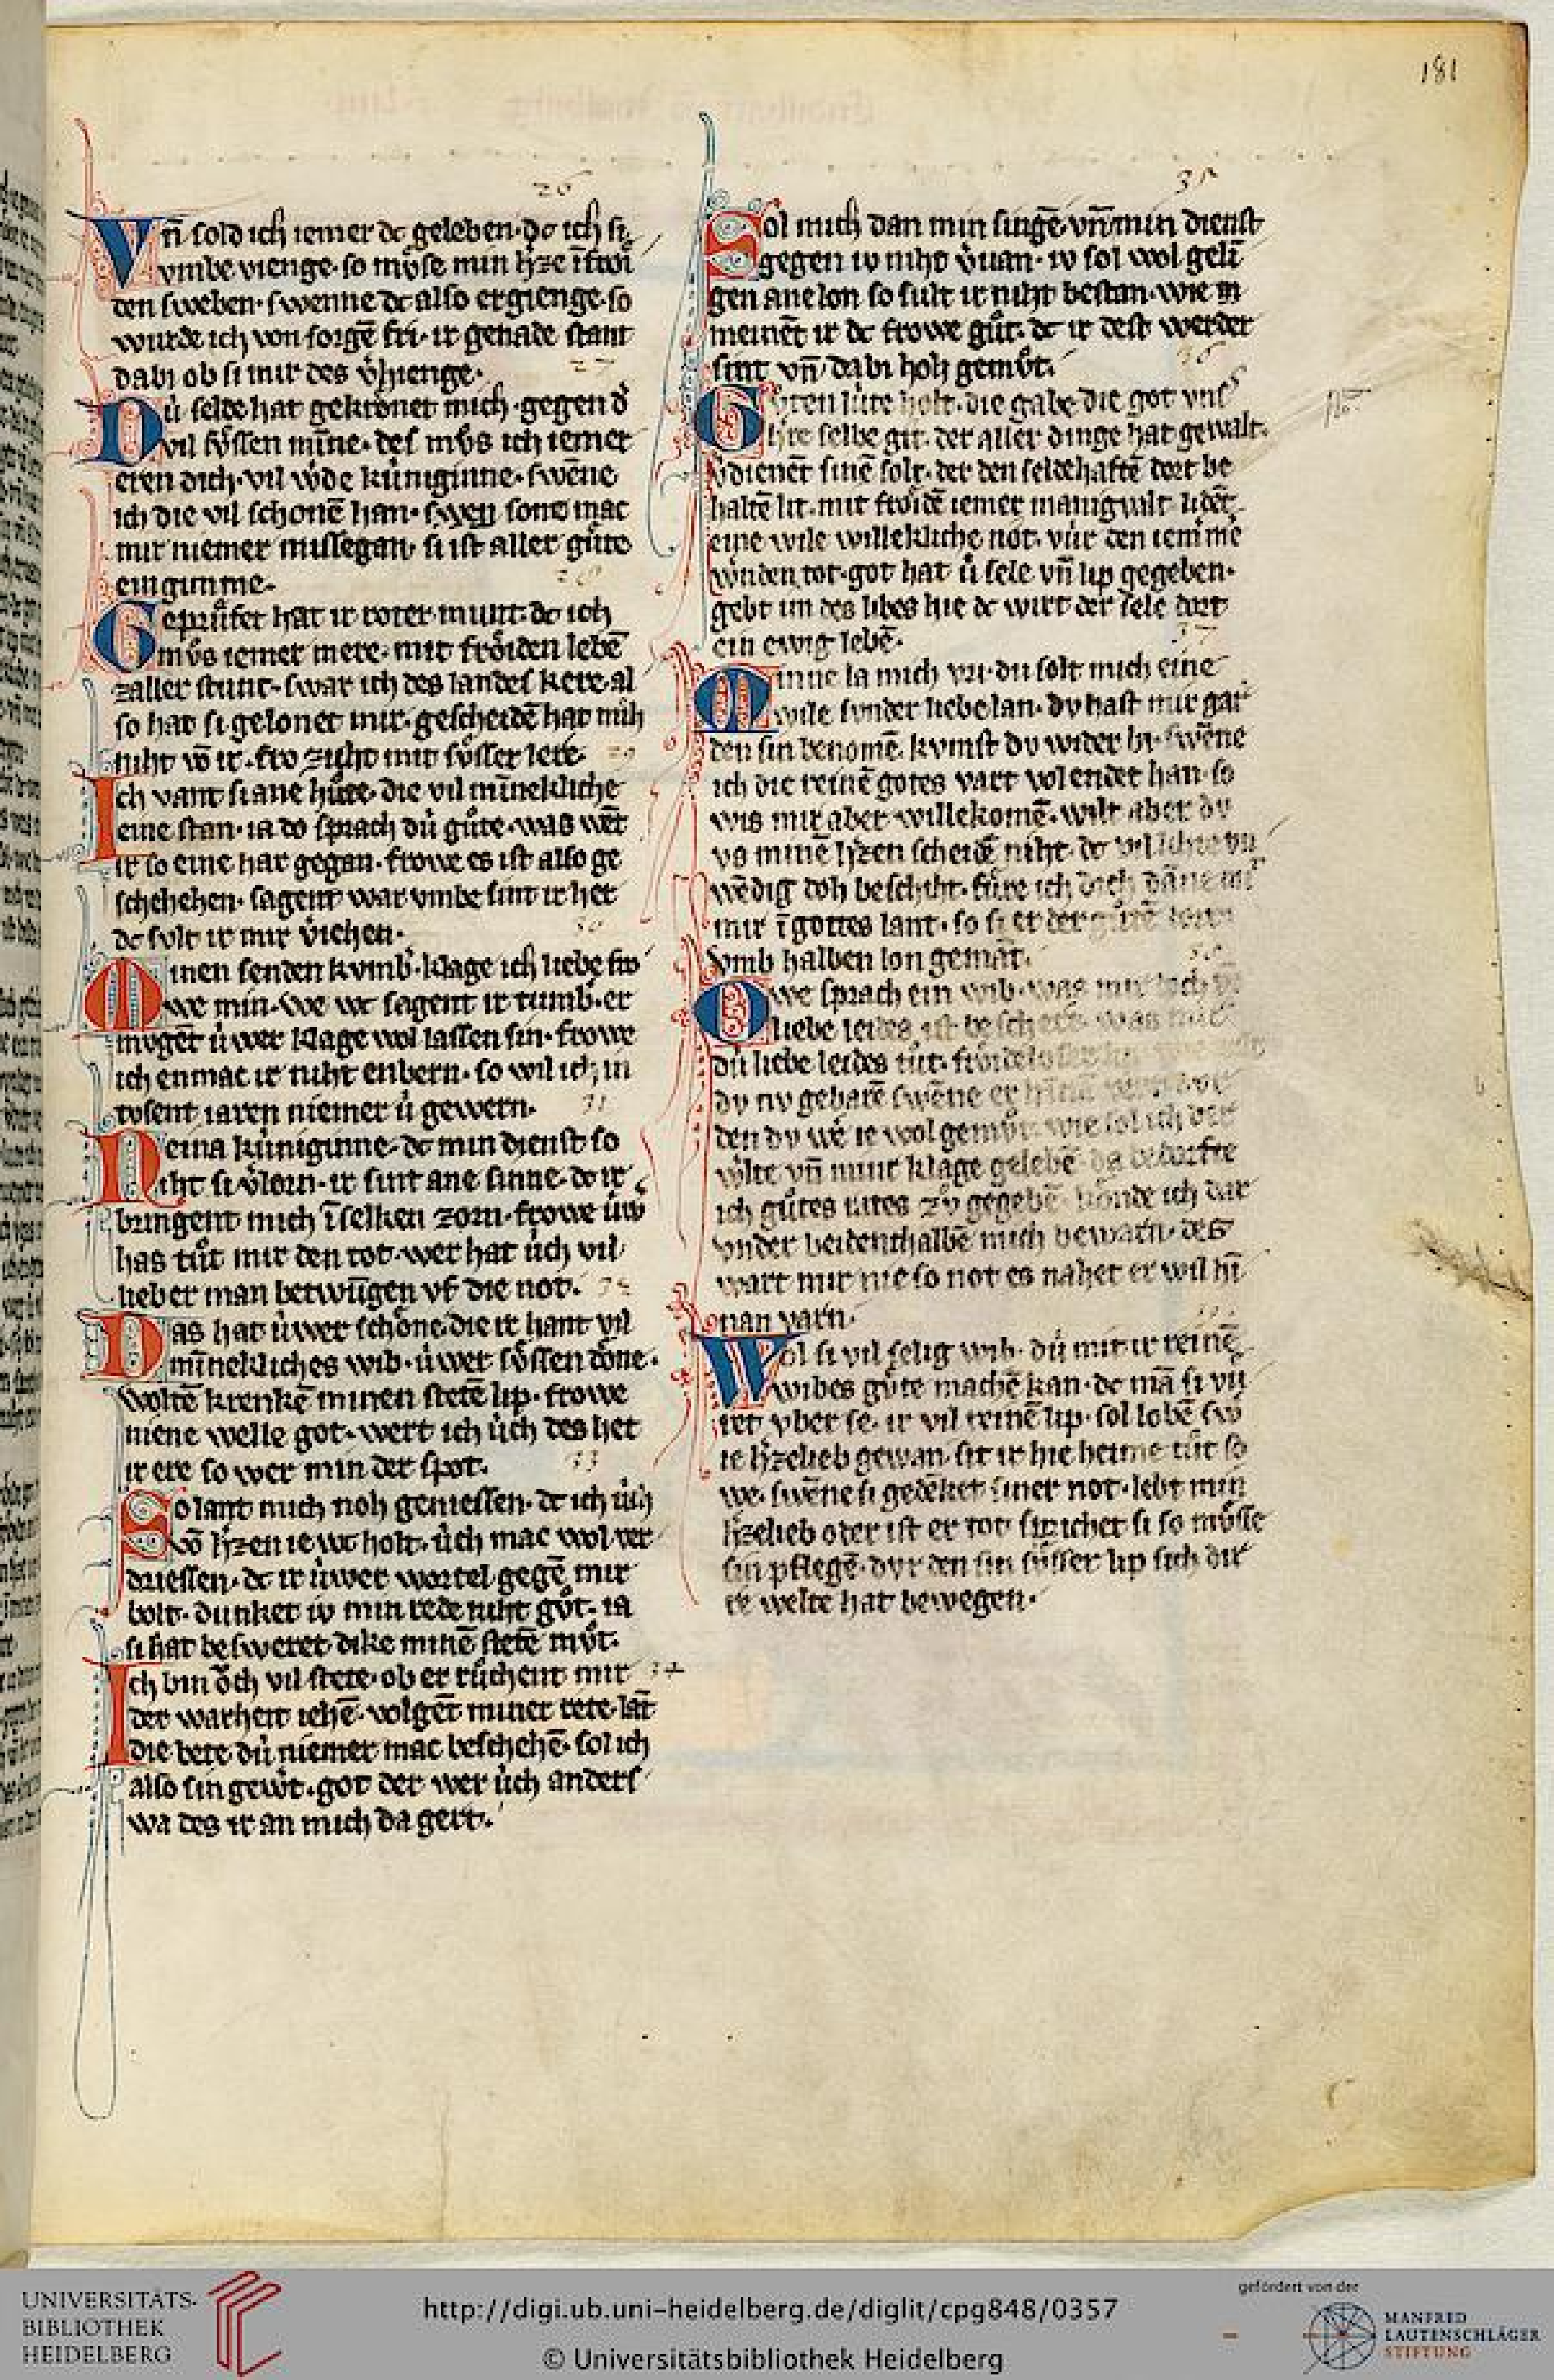 181
26
Vn̄ sold ich iemer dc geleben· dc ich si
vmbe vienge· so mvͤse min hˢze ī froͤi
den sweben· swenne dc also ergienge· so
wurde ich von sorgē fri· ir genade stant
dabi ob si mir des vˢhienge·
27
Dú selde hat gekroͤnet mich· gegen dˢ
vil svͤssen mīne· des mvͦs ich iemer
eren dich· vil wˢde kúniginne· swēne
ich die vil schonē han· seht sone mac
mir niemer missegan· si ist aller guͤte
ein gimme·
28
Gepruͤfet hat ir roter munt· dc ich
mvͦs iemer mere· mit froͤiden lebē
zaller stunt· swar ich des landes kere· al
so hat si gelonet mir· gescheidē hat mih
niht vō ir· fro zuht mit svͤsser lere·
29
Ich vant si ane huͦte· die vil mīnekliche
eine stan· ia do sprach dú guͦte· was wēt
ir so eine har gegan· frowe es ist also ge
schehehen· sagent war vmbe sint ir her
dc svlt ir mir vˢiehen·
30
Minen senden kvmbˢ· klage ich liebe fro
we min· we wc sagent ir tumbˢ· er
mvgēt úwer klage wol lassen sin· frowe
ich enmac ir niht enbern· so wil ich in
tvsent iaren niemer ú gewern·
31
Neina kúniginne· dc min dienst so
iht si vˢlorn· ir sint ane sinne· dc ir
bringent mich ī selken zorn· frowe úw̄
has tuͦt mir den tot· wer hat úch vil
lieber man betwūgen vf die not·
32
Das hat úwer schoͤne· die ir hant vil
mīnekliches wib· úwer svͤssen doͤne·
woltē krenkē minen stetē lip· frowe
niene welle got· wert ich úch des het
ir ere so wer min der spot·
33
So lant mich noh geniessen· dc ich úch
vō hˢzen ie wc holt· úch mac wol ver
driessen· dc ir úwer wortel gegē mir
bolt· dunket iv min rede niht guͦt· ia
si hat besweret dike minē stetē mvͦt·
34
Ich bin oͮch vil stete· ob er ruͦchent mir
der warheit iehē· volgēt miner rete· lāt
die bete dú niemer mac beschehē· sol ich
also sin gewˢt· got der wer úch anders
wa des ir an mich da gert·
35
Sol mich dan min singē· vn̄ min dienst
gegen iv niht vˢuan· iv sol wol gelī
gen ane lon so sult ir niht bestan· wie m
meinēt ir dc frowe guͦt· dc ir dest werder
sint vn̄ dabi hoh gemvͦt·
36
Gvͦten lúte holt· die gabe die got vns
hˢre selbe git· der aller dinge hat gewalt·
vˢdienēt sinē solt· der den seldehaftē dort be
haltē lit· mit froͤidē iemer manigvalt· lidēt
eine wile willekliche not· vúr den iemˢme
wˢnden tot· got hat ú sele vn̄ lip gegeben·
gebt im des libes hie dc wirt der sele dort
ein ewig lebē·
37
Minne la mich vri· du solt mich eine
wile svnder liebe lan· dv hast mir gar
den sin benomē· kvmst dv wider bi· swēne
ich die reinē gotes vart volendet han· so
wis mir aber willekomē· wilt aber dv
vs minē hˢzen scheidē niht· dc vil lihte vn
wēdig doh beschiht· fuͤre ich dich dāne mit
mir ī gottes lant· so si er der guͦtē
vmb halben lon gemāt·
38
Owe sprach ein wib· was mir ioch vo
liebe leides ist beschert· was mir
dú liebe leides tuͦt· froͤidelo
dv nv gebarē swēne er hīnā vert· vor
den dv wˢe ie wol gemvͦt· wie sol ich der
wˢlte vn̄ miner klage gelebē· da bedorfte
ich guͦtes rates zv gegebē· kvnde ich dar
vnder beidenthalbē mich bewarn· des
wart mir nie so not es nahet er wil hī
nan varn·
Wol si vil selig wib· dú mit ir reinē
wibes gvͤte machē kan· dc mā si vu
ret vber se· ir vil reinē lip· sol lobē sw̄
ie hˢzelieb gewan· sit ir hie heime tuͦt so
we· swēne si gedēket siner not· lebt min
hˢzelieb oder ist er tot· sprichet si so mvͤsse
sin pflegē· dvr den sin svͤsser lip sich dir
re welte hat bewegen·
UNIVERSITÄTS-
BIBLIOTHEK
HEIDELBERG
http://digi.ub.uni-heidelberg.de/diglit/cpg848/0357
© Universitätsbibliothek Heidelberg
gefördert von der
MANFRED
LAUTENSCHLÄGER
STIFTUNG